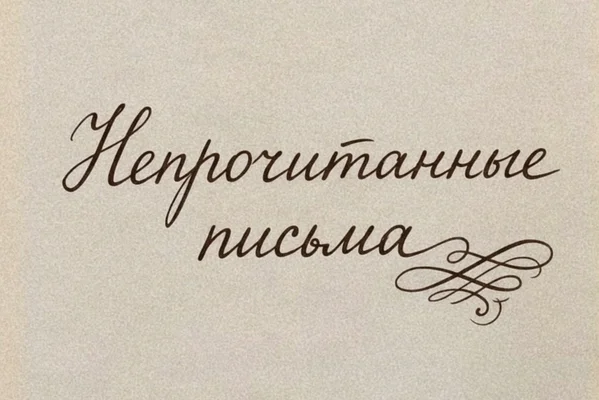 Непрочитанные
письма